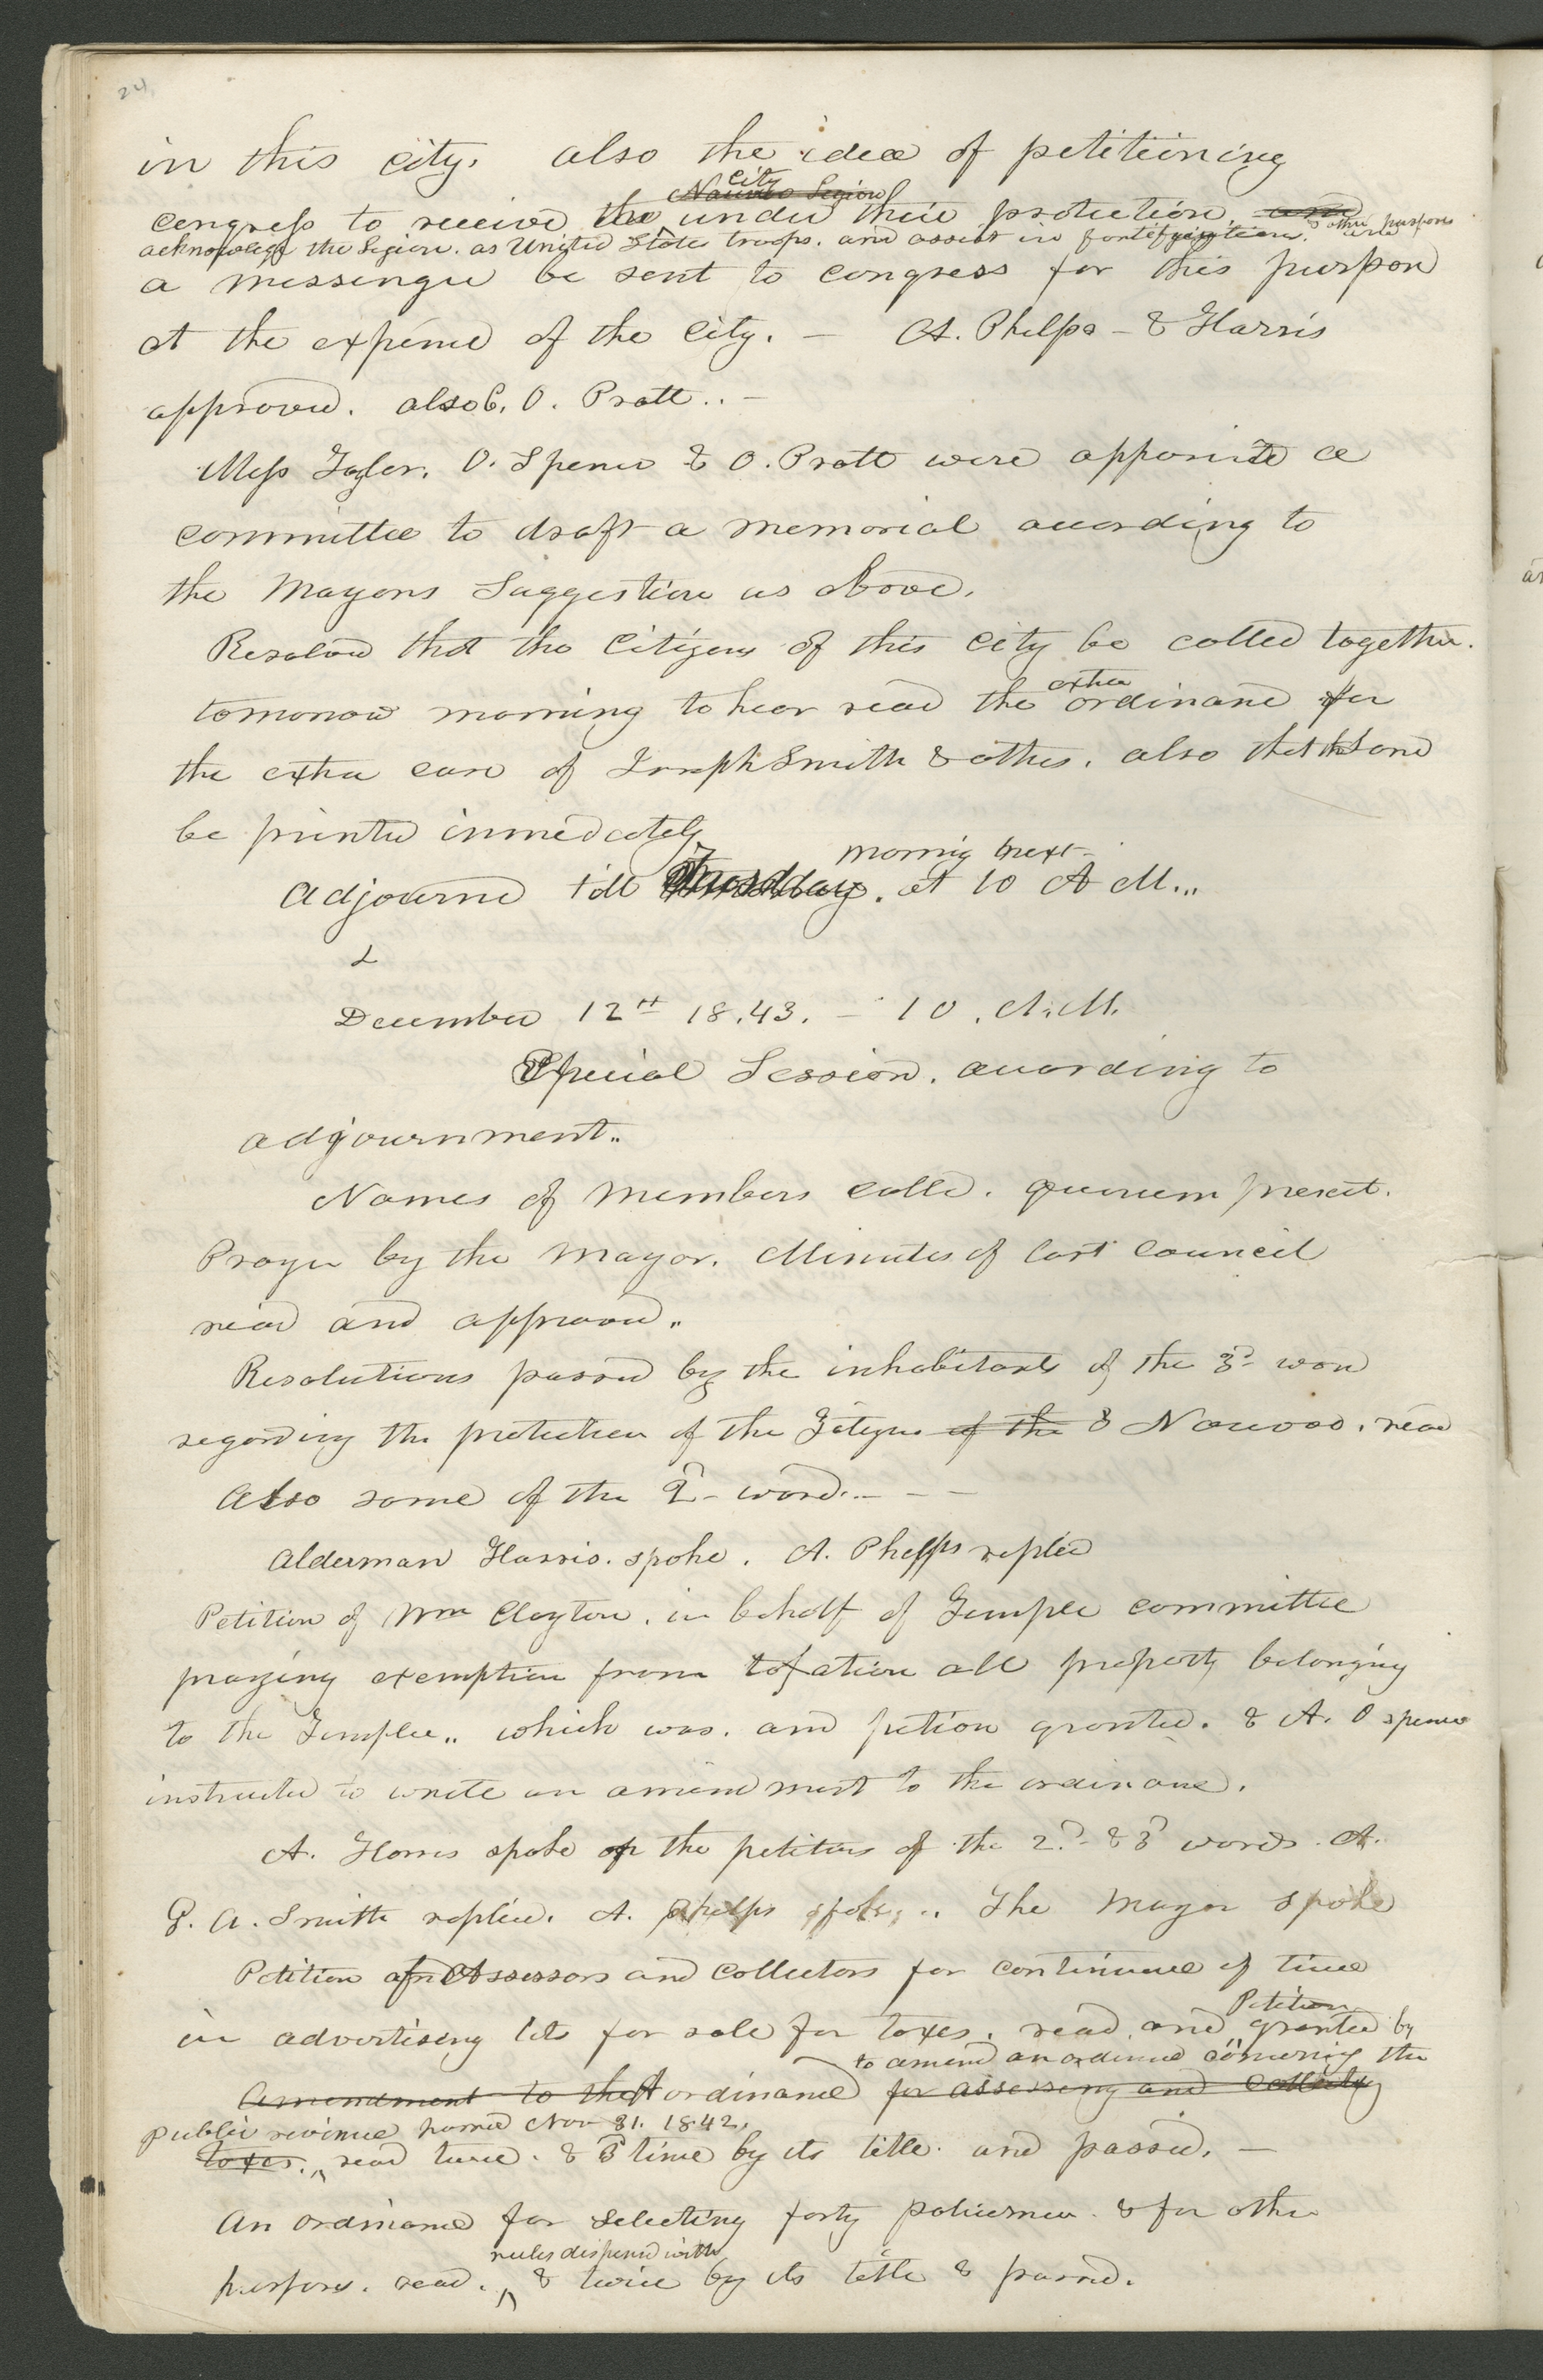 24
in this city. also the idea of petitioning
city
Nauvoo Legion
congress to receive the under their protection. and
acknowledge the Legion. as United States troops. and assist in fortifycations. & other purposes
a messenger be sent to congress for this purpose
at the expense of the city. — A. Phelps - & Harris
approved. also C. O. Pratt.. —
Mess Taylor. O. Spencer & O. Pratt were appointed a
committee to draft a memorial according to
the Mayors Suggestion as above.
Resolved that the Citizens of this city be called together.
extra
tomorrow morning to hear read the ordinance for
the extra case of Joseph Smith & others. also that the same
be printed immediately
morning next-
Adjourned till Tuesday. at 10 A M...
December 12th 18.43. — 10. A.M.
Special Session. according to
adjournment..
Names of members called. quorum present.
Prayer by the Mayor. Minutes of last council
read and approved..
Resolutions passed by the inhabitants of the 3d ward
regarding the protection of the Citizens of the & Nauvoo. read
Also some of the 2d- ward.. - -
Alderman Harris. spoke. A. Phelps replied
Petition of Wm Clayton. in behalf of Temple committee
praying exemption from taxation all property belonging
to the Temple.. which was. and petion granted. & A. O Spencer
instructed to write an amendment to the ordinance.
A. Harris spoke on the petitions of the 2d- & 3d wards. A.
G. A. Smith replied. A. Phelps spoke.. The Mayor spoke
Petition of Assessors and Collectors for continuance of time
Petition
in advertising lots for sale for taxes. read. and granted by
to amend an ordinance concerning the
Amendment to the A ordinance for assessing and collecting
public revenue passed Nov 21. 1842.
taxes. read twice. & 3d time by its title. and passed. —
An ordinance for selecting forty policemen. & for other
rules dispensed with
purposes. read. & twice by its title & passed.